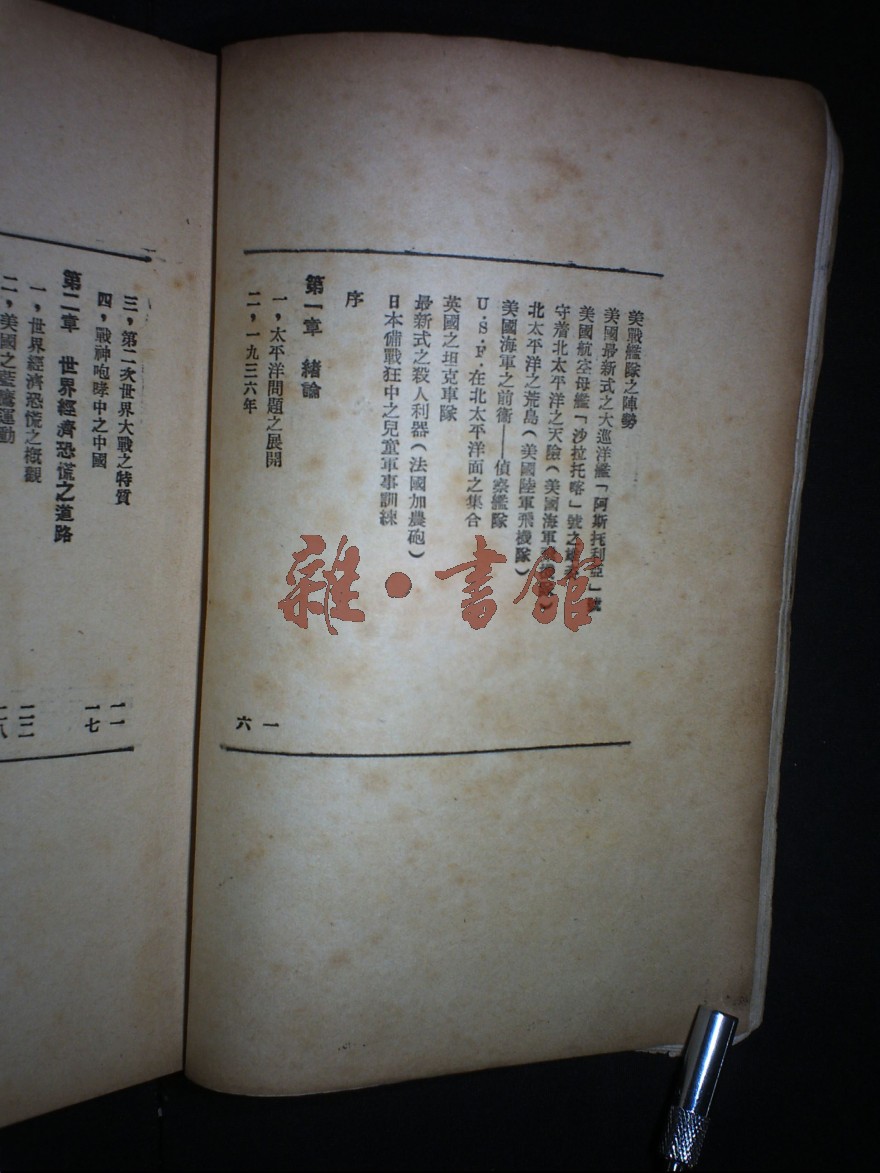 美戰艦隊之陣勢
美國最新式之大巡洋艦「阿斯托利亞」號
美國航空母艦「沙拉托喀」號之雄
守着北太平洋之天險(美國海軍飛機隊)
北太平洋之荒島(美國陸軍飛機隊)
美國海軍之前衛——偵察艦隊
U.S.F.在北太平洋面之集合
英國之坦克車隊
最新式之殺人利器(法國加農砲)
日本備戰狂中之兒童軍事訓練
序
第一章 緒論
一,太平洋問題之展開 一
二,一九三六年 六
三,第二次世界大戰之特質 一一
四,戰神咆哮中之中國 一七
第二章 世界經濟恐慌之道路
一,世界經濟恐慌之概觀 二二
二,美國之藍鷹運動 二八
雜·書館